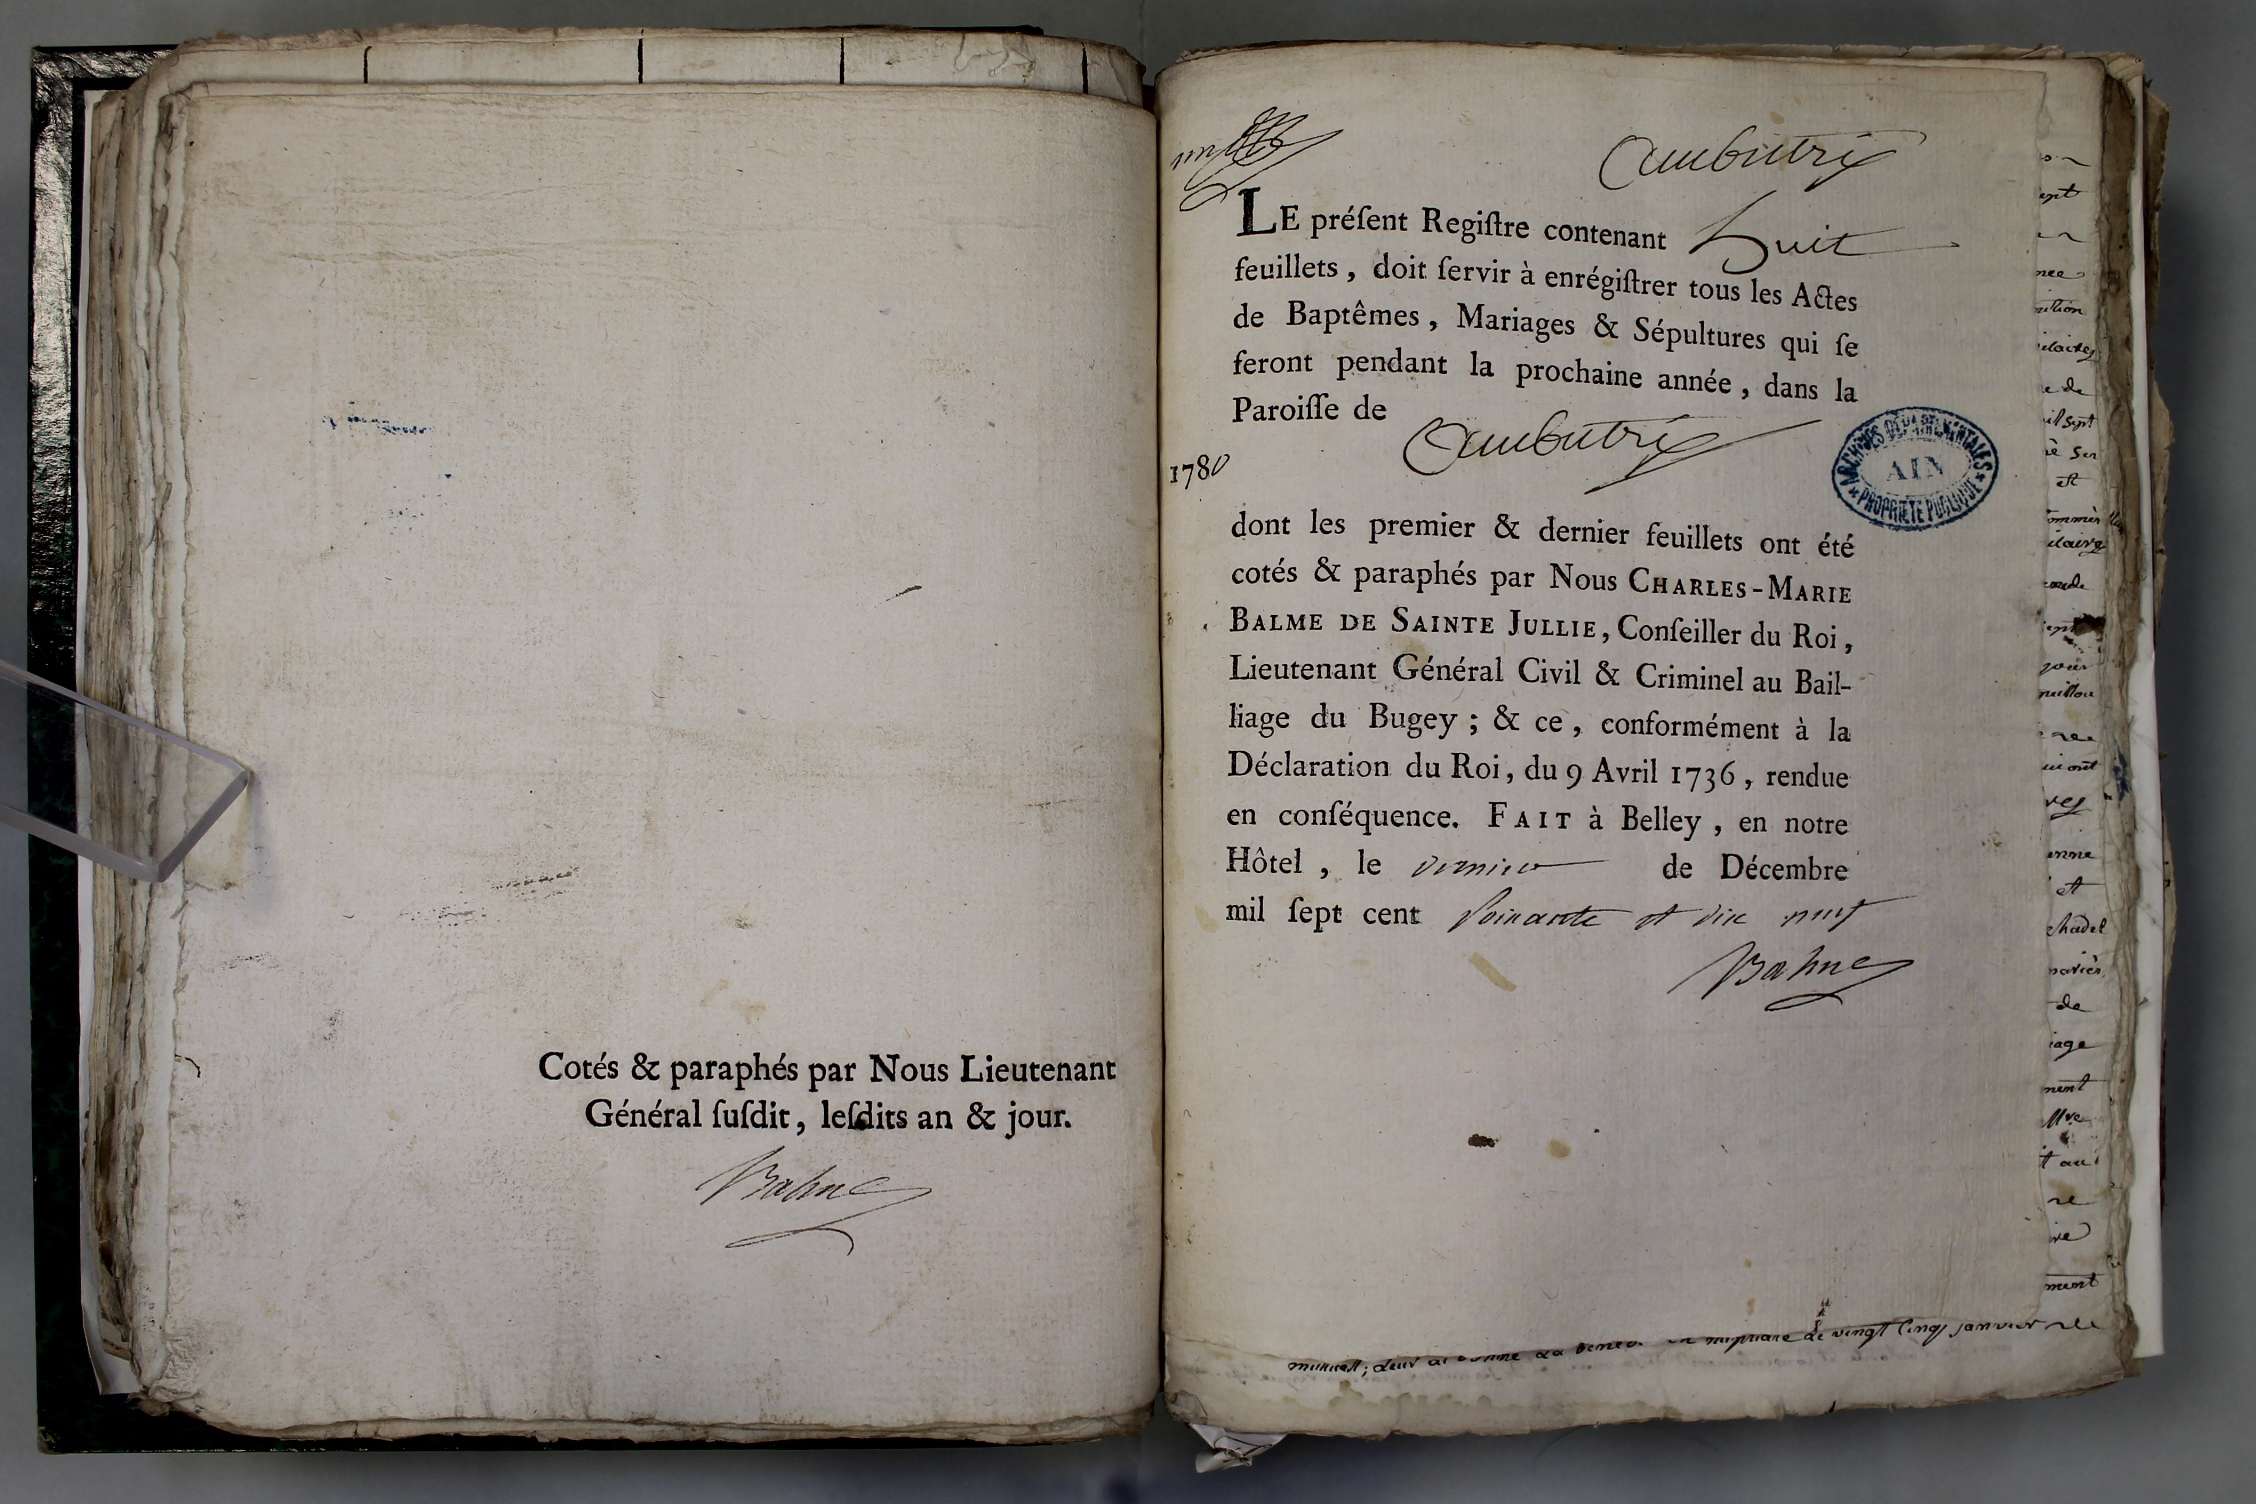 Cotés & paraphés par Nous Lieutenant
Général ſuſdit, leſdits an & jour.
Balme
Ambutrix
LE préſent Regiſtre contenant huit
feuillets, doit ſervir à enrégiſtrer tous les Actes
de Baptêmes, Mariages & Sépultures qui ſe
feront pendant la prochaine année, dans la
Paroiſſe de
Ambutrix
1780
ARCHIVES DÉPARTEMENTALES
AIN
PROPRIÉTÉ PUBLIQUE
dont les premier & dernier feuillets ont été
cotés & paraphés par Nous CHARLES-MARIE
BALME DE SAINTE JULLIE, Conſeiller du Roi,
Lieutenant Général Civil & Criminel au Bail-
liage du Bugey; & ce, conformément à la
Déclaration du Roi, du 9 Avril 1736, rendue
en conſéquence. FAIT à Belley, en notre
Hôtel, le dernier de Décembre
mil ſept cent soixante et dix neuf
Balme
de vingt cinq janvier